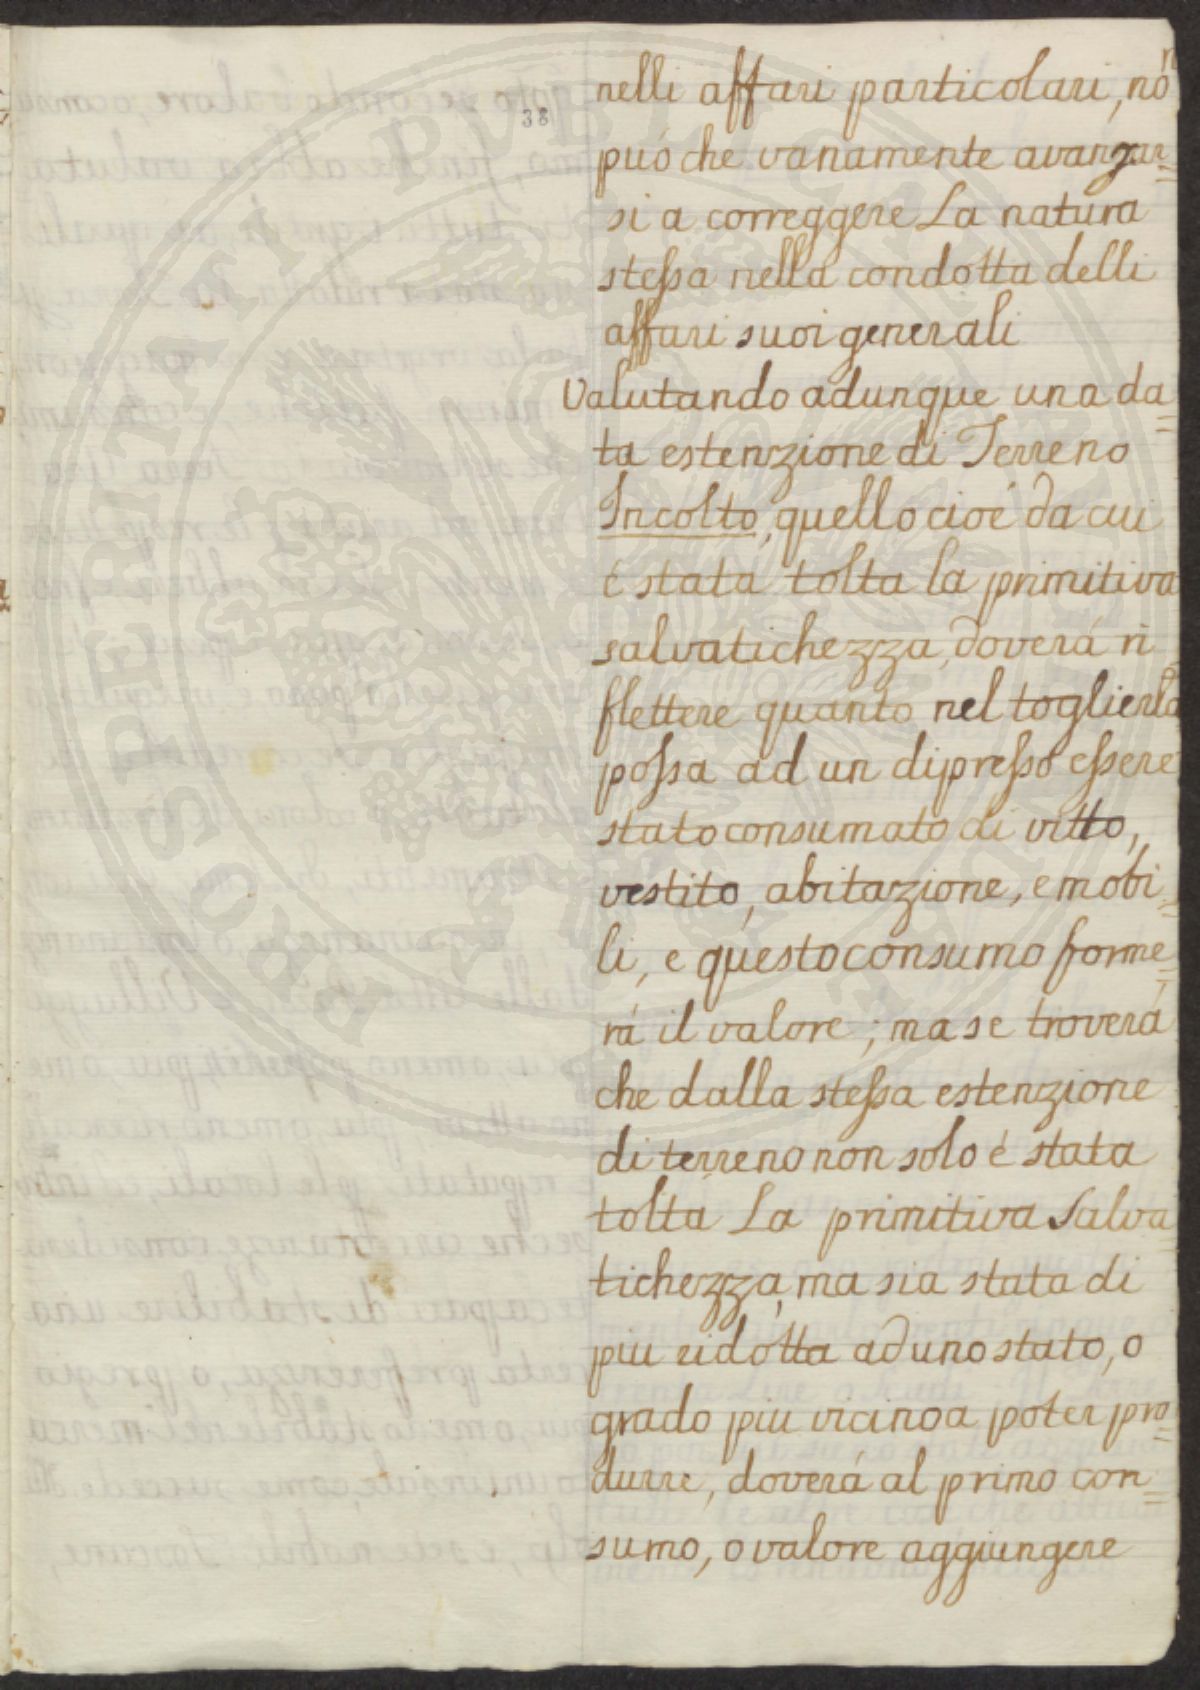 38
nelli affari particolari, nō
puó che vanamente avanzar=
si a correggere La natura
stessa nella condotta delli
affari suoi generali
Valutando adunque una da=
ta estenzione di Terreno
Incolto, quello cioé da cui
é stata tolta la primitiva
salvatichezza, doverá ri=
flettere quanto nel toglierla
possa ad un dipresso essere
stato consumato di vitto,
vestito, abitazione, e mobi=
li, e questo consumo forme=
rá il valore; ma se troverá
che dalla stessa estenzione
di terreno non solo é stata
tolta La primitiva Salva=
tichezza, ma sia stata di
piu ridotta ad uno stato, o
grado piu vicino a poter pro=
durre, doverá al primo con=
sumo, o valore aggiungere
PROSPERITATI PUBLICAE